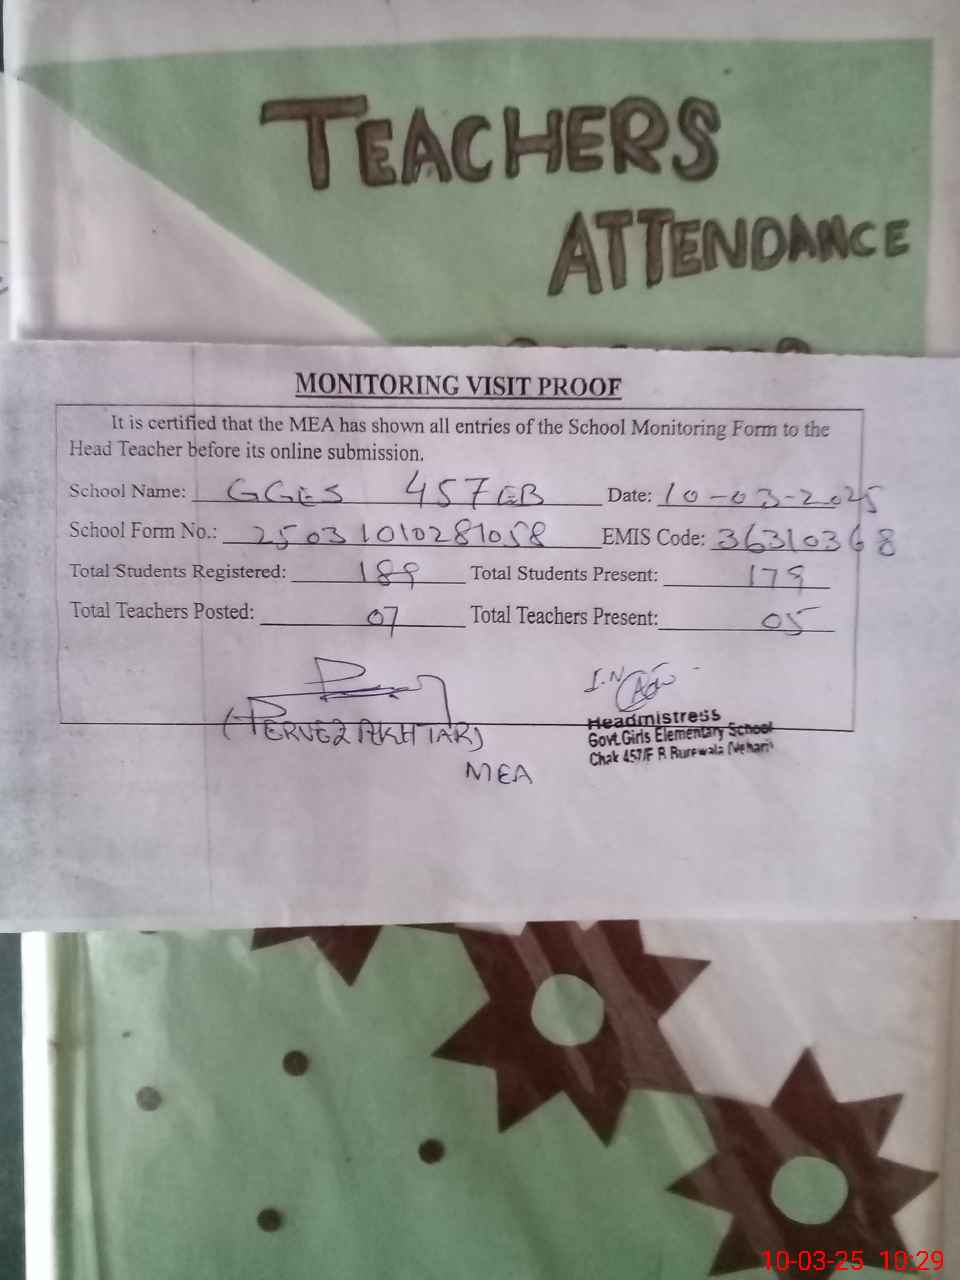 TEACHERS
ATTENDANCE
MONITORING VISIT PROOF
It is certified that the MEA has shown all entries of the School Monitoring Form to the
Head Teacher before its online submission.
School Name: GGES 457 EB Date: 10-03-2025
School Form No.: 25031010281058 EMIS Code: 36310368
Total Students Registered: 189 Total Students Present: 179
Total Teachers Posted: 07 Total Teachers Present: 05
(PERVEZ AKHTAR)
MEA
Headmistress
Govt. Girls Elementary School
Chak 457/E B Burewala (Vehari)
10-03-25 10:29